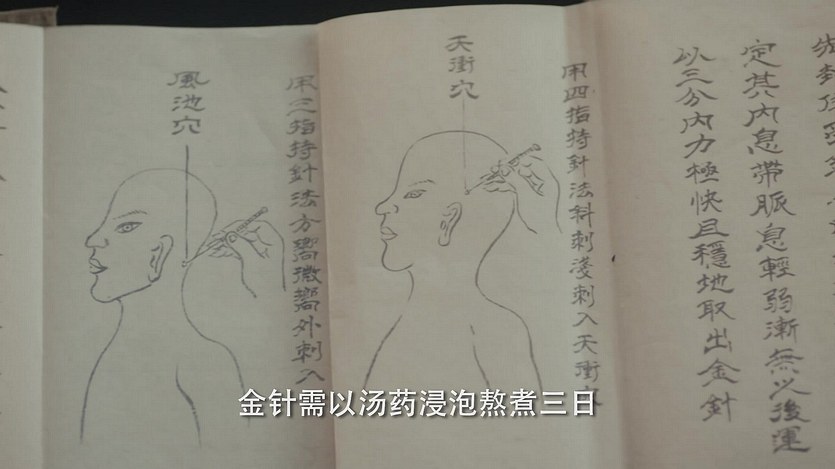 定其內息帶脈息輕弱漸無以後運
以三分內力極快且穩地取出金針
天衝穴
用四指持針法斜刺淺刺入天衝
風池穴
用三指持針法方嚮微嚮外刺入
金针需以汤药浸泡熬煮三日